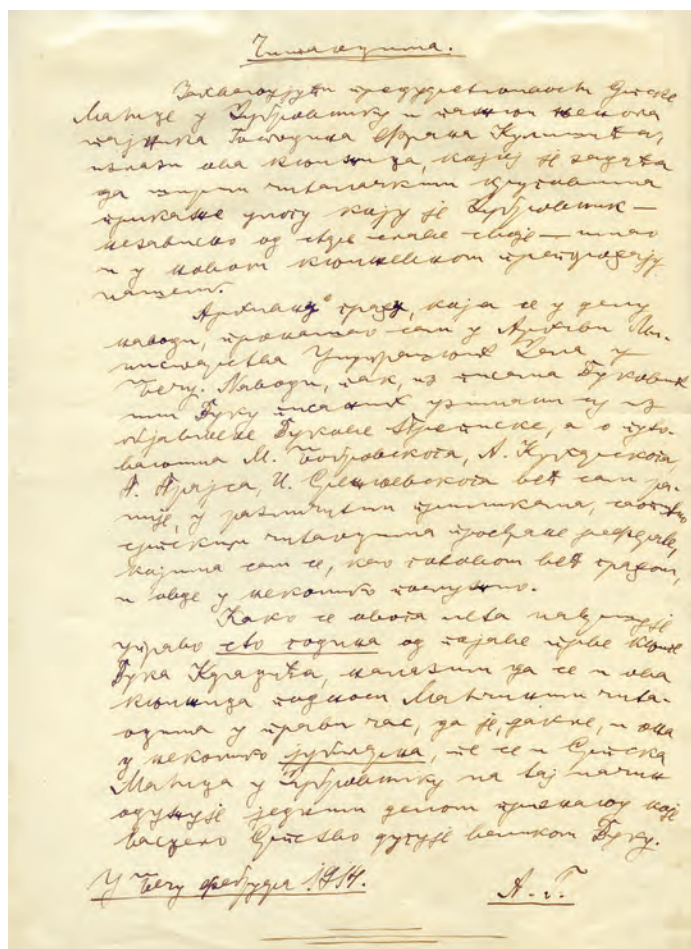 Читаоцима.
Захваљујући предусретљивости Српске
Матице у Дубровнику и њеног
тајника Господина Франа Кулишића,
излази ова књижица, којој је задаћа
да ширим читалачким круговима
прикаже улогу коју је Дубровник —
независно од старе славе своје — имао
и у новом књижевном препорођају
нашем.
Архивску грађу, која се у делу
наводи, пронашао сам у Архиви Ми-
нистарства Унутрашњих Дела у
Бечу. Наводи, пак, из писама Вукових
или Вуку писаних узимани су из
објављене Вукове Преписке, а о путо-
вањима М. Бобровскога, А. Кухарскога,
П. Прајса, И. Срезњевскога већ сам ра-
није, у различитим приликама,
српским читаоцима
којима сам се, као готовом већ грађом,
и овде у неколико послужио.
Како се овога лета навршује
управо сто година од појаве прве књиге
Вука Караџића, налазим да се и ова
књижица подноси Матичиним чита-
оцима у прави час, да је, дакле, и она
у неколико јубиларна, те се и Српска
Матица у Дубровнику на тај начин
одужује једним делом признању које
васцело Српство дугује великом Вуку.
У Бечу фебруара 1914.
А. Г.